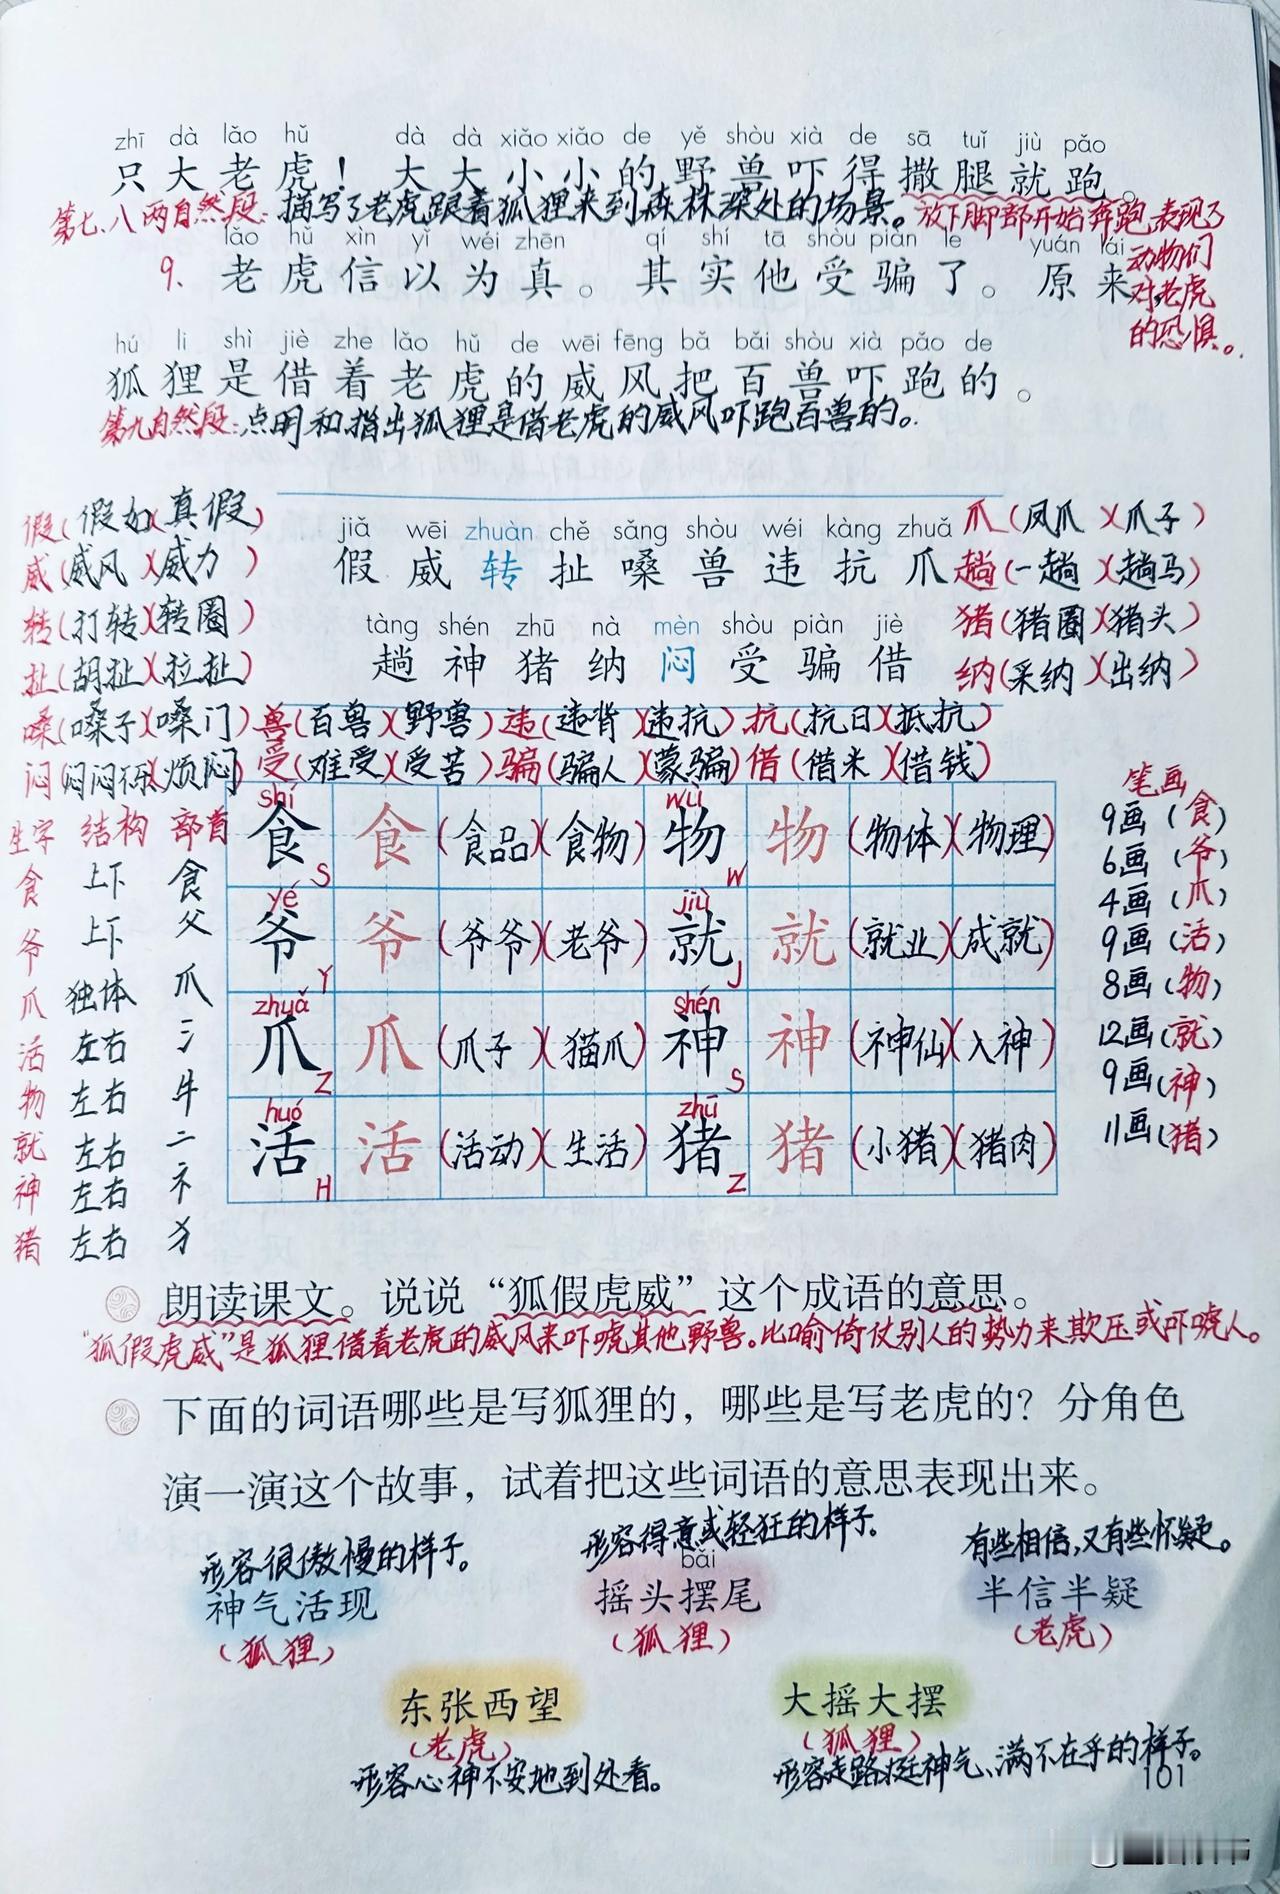 zhī dà lǎo hǔ dà dà xiǎo xiǎo de yě shòu xià de sā tuǐ jiù pǎo
只大老虎！大大小小的野兽吓得撒腿就跑。
第七、八两自然段：描写了老虎跟着狐狸来到森林深处的场景。
放下脚部开始奔跑，表现了
动物们
对老虎
的恐惧。
lǎo hǔ xìn yǐ wéi zhēn qí shí tā shòu piàn le yuán lái
9. 老虎信以为真。其实他受骗了。原来，
hú li shì jiè zhe lǎo hǔ de wēi fēng bǎ bǎi shòu xià pǎo de
狐狸是借着老虎的威风把百兽吓跑的。
第九自然段：点明和指出狐狸是借老虎的威风吓跑百兽的。
假（假如）（真假）
威（威风）（威力）
转（打转）（转圈）
扯（胡扯）（拉扯）
jiǎ wēi zhuàn chě sǎng shòu wéi kàng zhuǎ
假 威 转 扯 嗓 兽 违 抗 爪
tàng shén zhū nà mèn shòu piàn jiè
趟 神 猪 纳 闷 受 骗 借
爪（凤爪）（爪子）
趟（一趟）（趟马）
猪（猪圈）（猪头）
纳（采纳）（出纳）
嗓（嗓子）（嗓门）兽（百兽）（野兽）违（违背）（违抗）抗（抗日）（抵抗）
闷（闷闷不乐）（烦闷）受（难受）（受苦）骗（骗人）（蒙骗）借（借米）（借钱）
生字 结构 部首
食 上下 食
爷 上下 父
爪 独体 爪
活 左右 氵
物 左右 牛
就 左右 亠
神 左右 礻
猪 左右 犭
shí wù
食 食（食品）（食物）物 物（物体）（物理）
S W
yé jiù
爷 爷（爷爷）（老爷）就 就（就业）（成就）
Y J
zhuǎ shén
爪 爪（爪子）（猫爪）神 神（神仙）（入神）
Z S
huó zhū
活 活（活动）（生活）猪 猪（小猪）（猪肉）
H Z
笔画
9画（食）
6画（爷）
4画（爪）
9画（活）
8画（物）
12画（就）
9画（神）
11画（猪）
朗读课文。说说“狐假虎威”这个成语的意思。
“狐假虎威”是狐狸借着老虎的威风来吓唬其他野兽。比喻倚仗别人的势力来欺压或吓唬人。
下面的词语哪些是写狐狸的，哪些是写老虎的？分角色
演一演这个故事，试着把这些词语的意思表现出来。
形容很傲慢的样子。
神气活现
（狐狸）
形容得意或轻狂的样子。
bǎi
摇头摆尾
（狐狸）
有些相信，又有些怀疑。
半信半疑
（老虎）
东张西望
（老虎）
形容心神不安地到处看。
大摇大摆
（狐狸）
形容走路挺神气、满不在乎的样子。
101